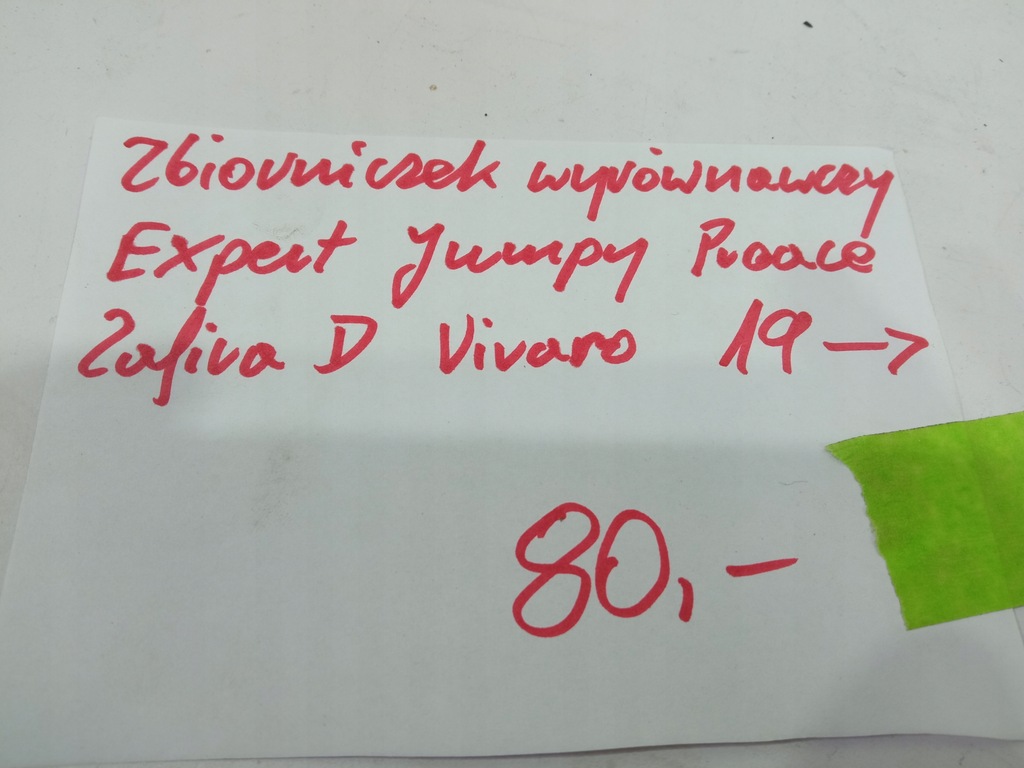 Zbiorniczek wyrównawczy
Expert Jumpy Proace
Zafira D Vivaro 19 →
80,-